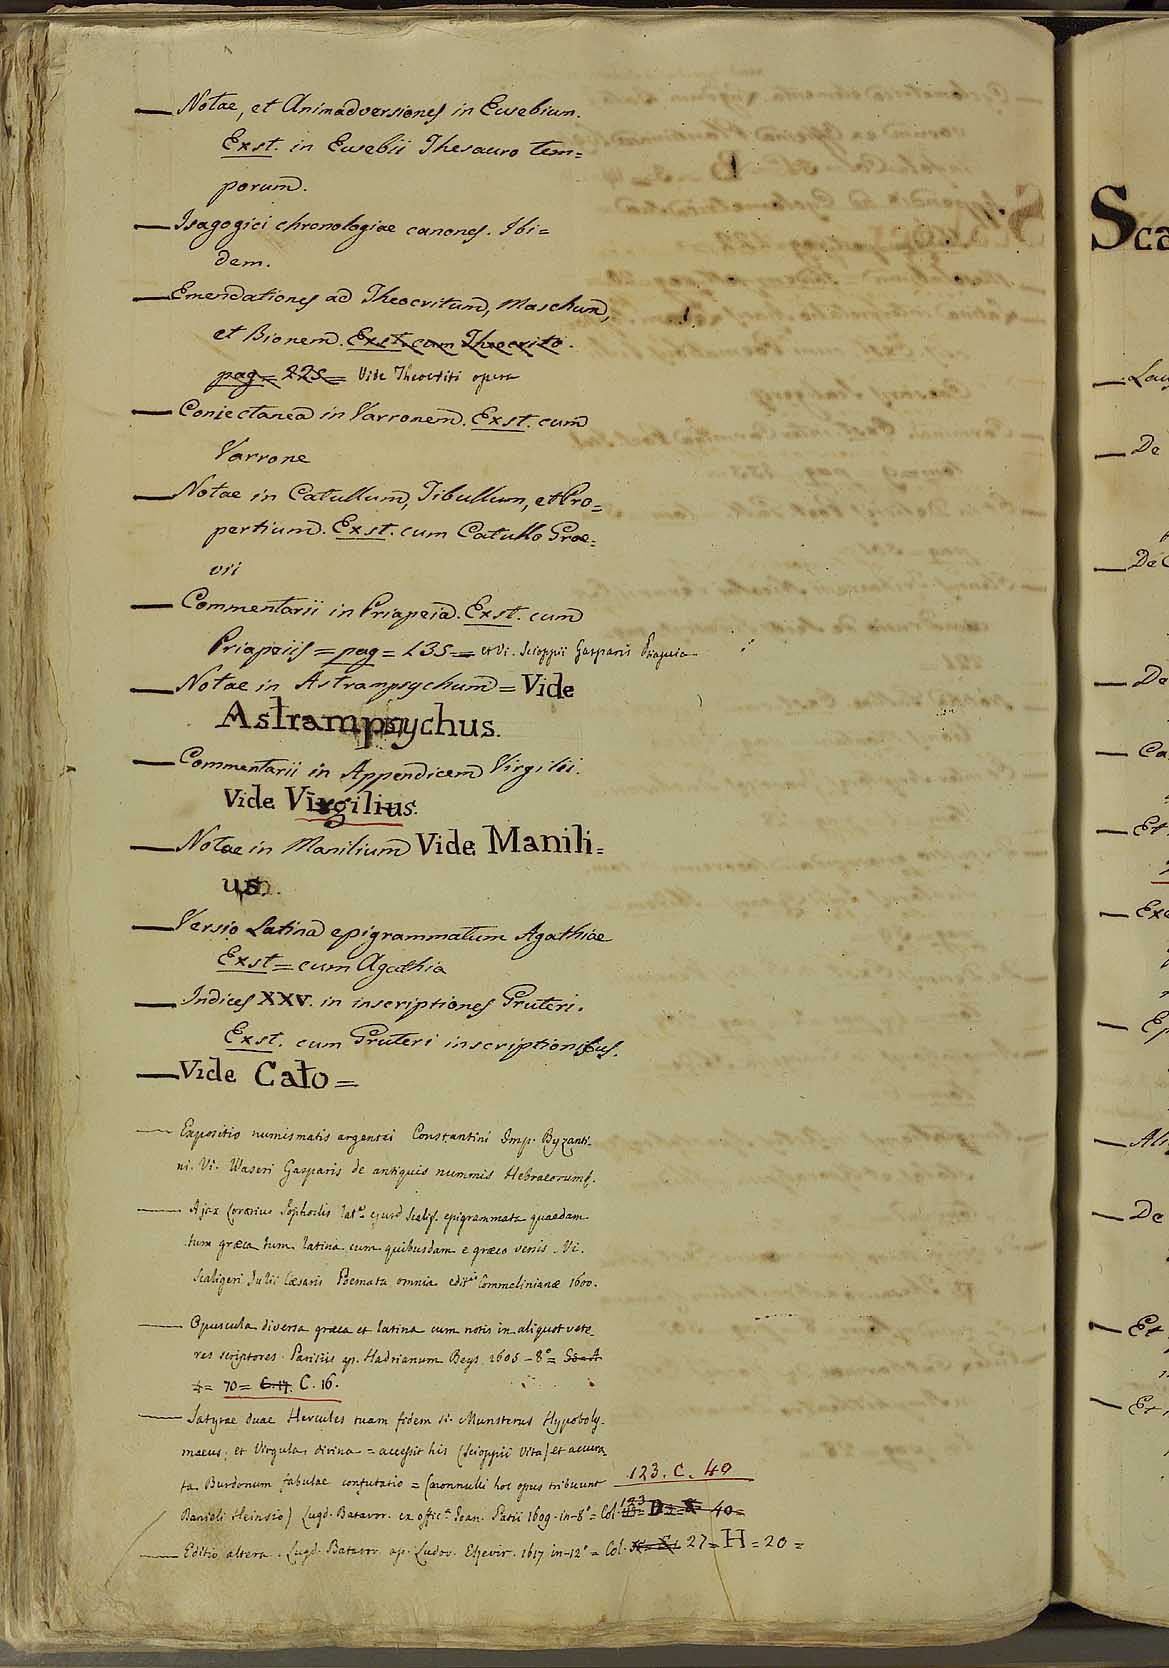 — Notae, et Animadversiones in Eusebium.
Exst. in Eusebii Thesauro tem=
porum.
— Isagogici chronologiae canones. Ibi=
dem.
— Emendationes ad Theocritum, Moschum,
et Bionem. Exst. cum Theocrito.
pag = 225 = Vide Theocriti opera
— Coniectanea in Varronem. Exst. cum
Varrone
— Notae in Catullum, Tibullum, et Pro=
pertium. Exst. cum Catullo Grae=
vii
— Commentarii in Priapeia. Exst. cum
Priapeiis = pag = 135 = et Vi. Scioppii Gasparis Priapeia
— Notae in Astrampsychum = Vide
Astrampsychus.
— Commentarii in Appendicem Virgilii.
Vide Virgilius.
— Notae in Manilium Vide Manili=
us.
— Versio Latina epigrammatum Agathiae
Exst = cum Agathia
— Indices XXV. in inscriptiones Gruteri.
Exst. cum Gruteri inscriptionibus.
— Vide Cato =
— Expositio numismatis argentei Constantini Imp. Byzanti-
ni. Vi. Waseri Gasparis de antiquis nummis Hebraeorum.
— Ajax Lorarius Sophoclis lat.e ejusd Scalig. epigrammata quaedam
tum græca tum latina cum quibusdam e græco versis. Vi.
Scaligeri Julii Cæsaris Poemata omnia edit.is Commelinianæ 1600.
— Opuscula diversa græca et latina cum notis in aliquot vete-
res scriptores. Parisiis ap. Hadrianum Beys 1605 - 8.o =
70 = C. 16.
— Satyrae duae Hercules tuam fidem si. Munsterus Hypoboly-
maeus; et Virgula divina = accessit his (Scioppii Vita) et accura-
ta Burdonum fabulae confutatio = (nonnulli hoc opus tribuunt 123. C. 40
Danieli Heinsio) Lugd. Batavor. ex offic.a Joan. Patii 1609. in-8.o = Col. 123 D = 40 =
— Editio altera. Lugd. Batavor. ap. Ludov. Elzevir. 1617 in-12.o = Col. 27 = H = 20 =
Sca
— De
— De
— De
— Ca
— Et
— Exe
— Ep
— De
— Et
— Et